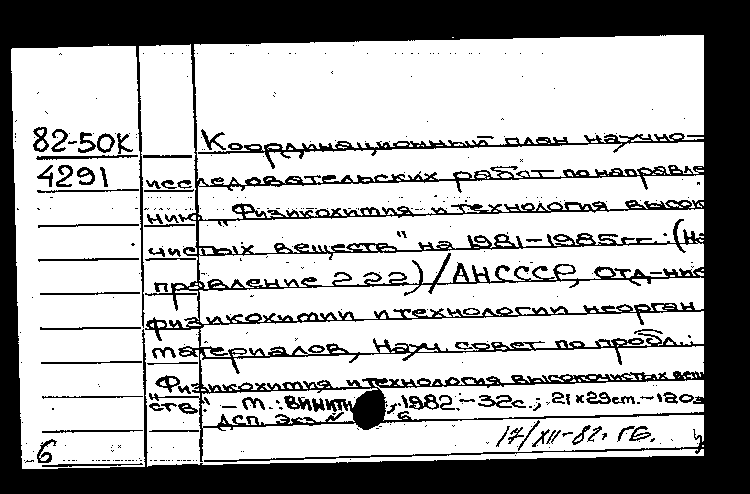 82-50К Координационный план научно-
4291 исследовательских работ по направле
нию „Физикохимия и технология высок
чистых веществ" на 1981-1985 гг.: (На
правление 2.22) / АН СССР, Отд-ние
физикохимии и технологии неорган
материалов, Науч. совет по пробл.:
„Физикохимия и технология высокочистых веще
ств." – М.: ВИНИТИ, 1982. – 32с.; 21х29см. – 120э
ДСП. Экз. № 6
17/XII-82. ГБ.
6